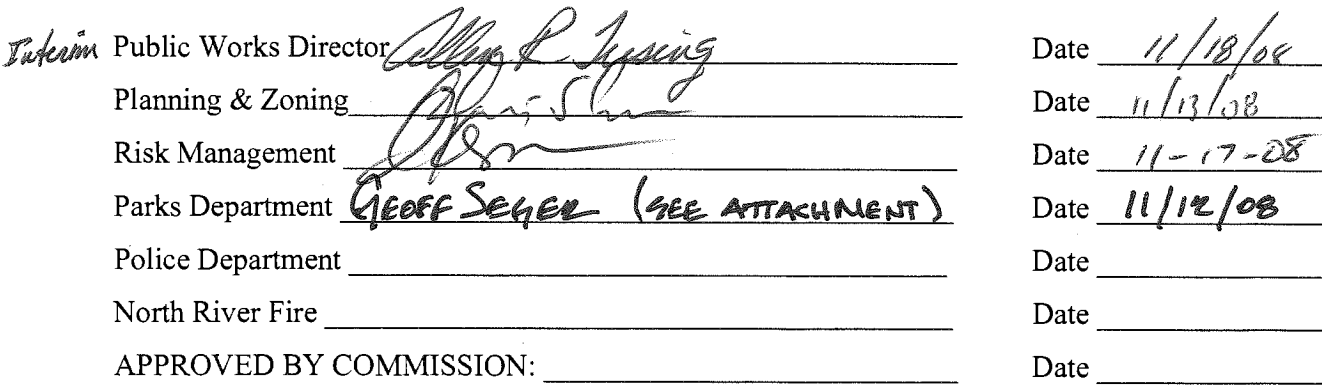 Interim Public Works Director Allen R Tusing Date 11/18/08
Planning & Zoning Date 11/13/08
Risk Management Date 11-17-08
Parks Department GEOFF SEGER (SEE ATTACHMENT) Date 11/12/08
Police Department Date
North River Fire Date
APPROVED BY COMMISSION: Date